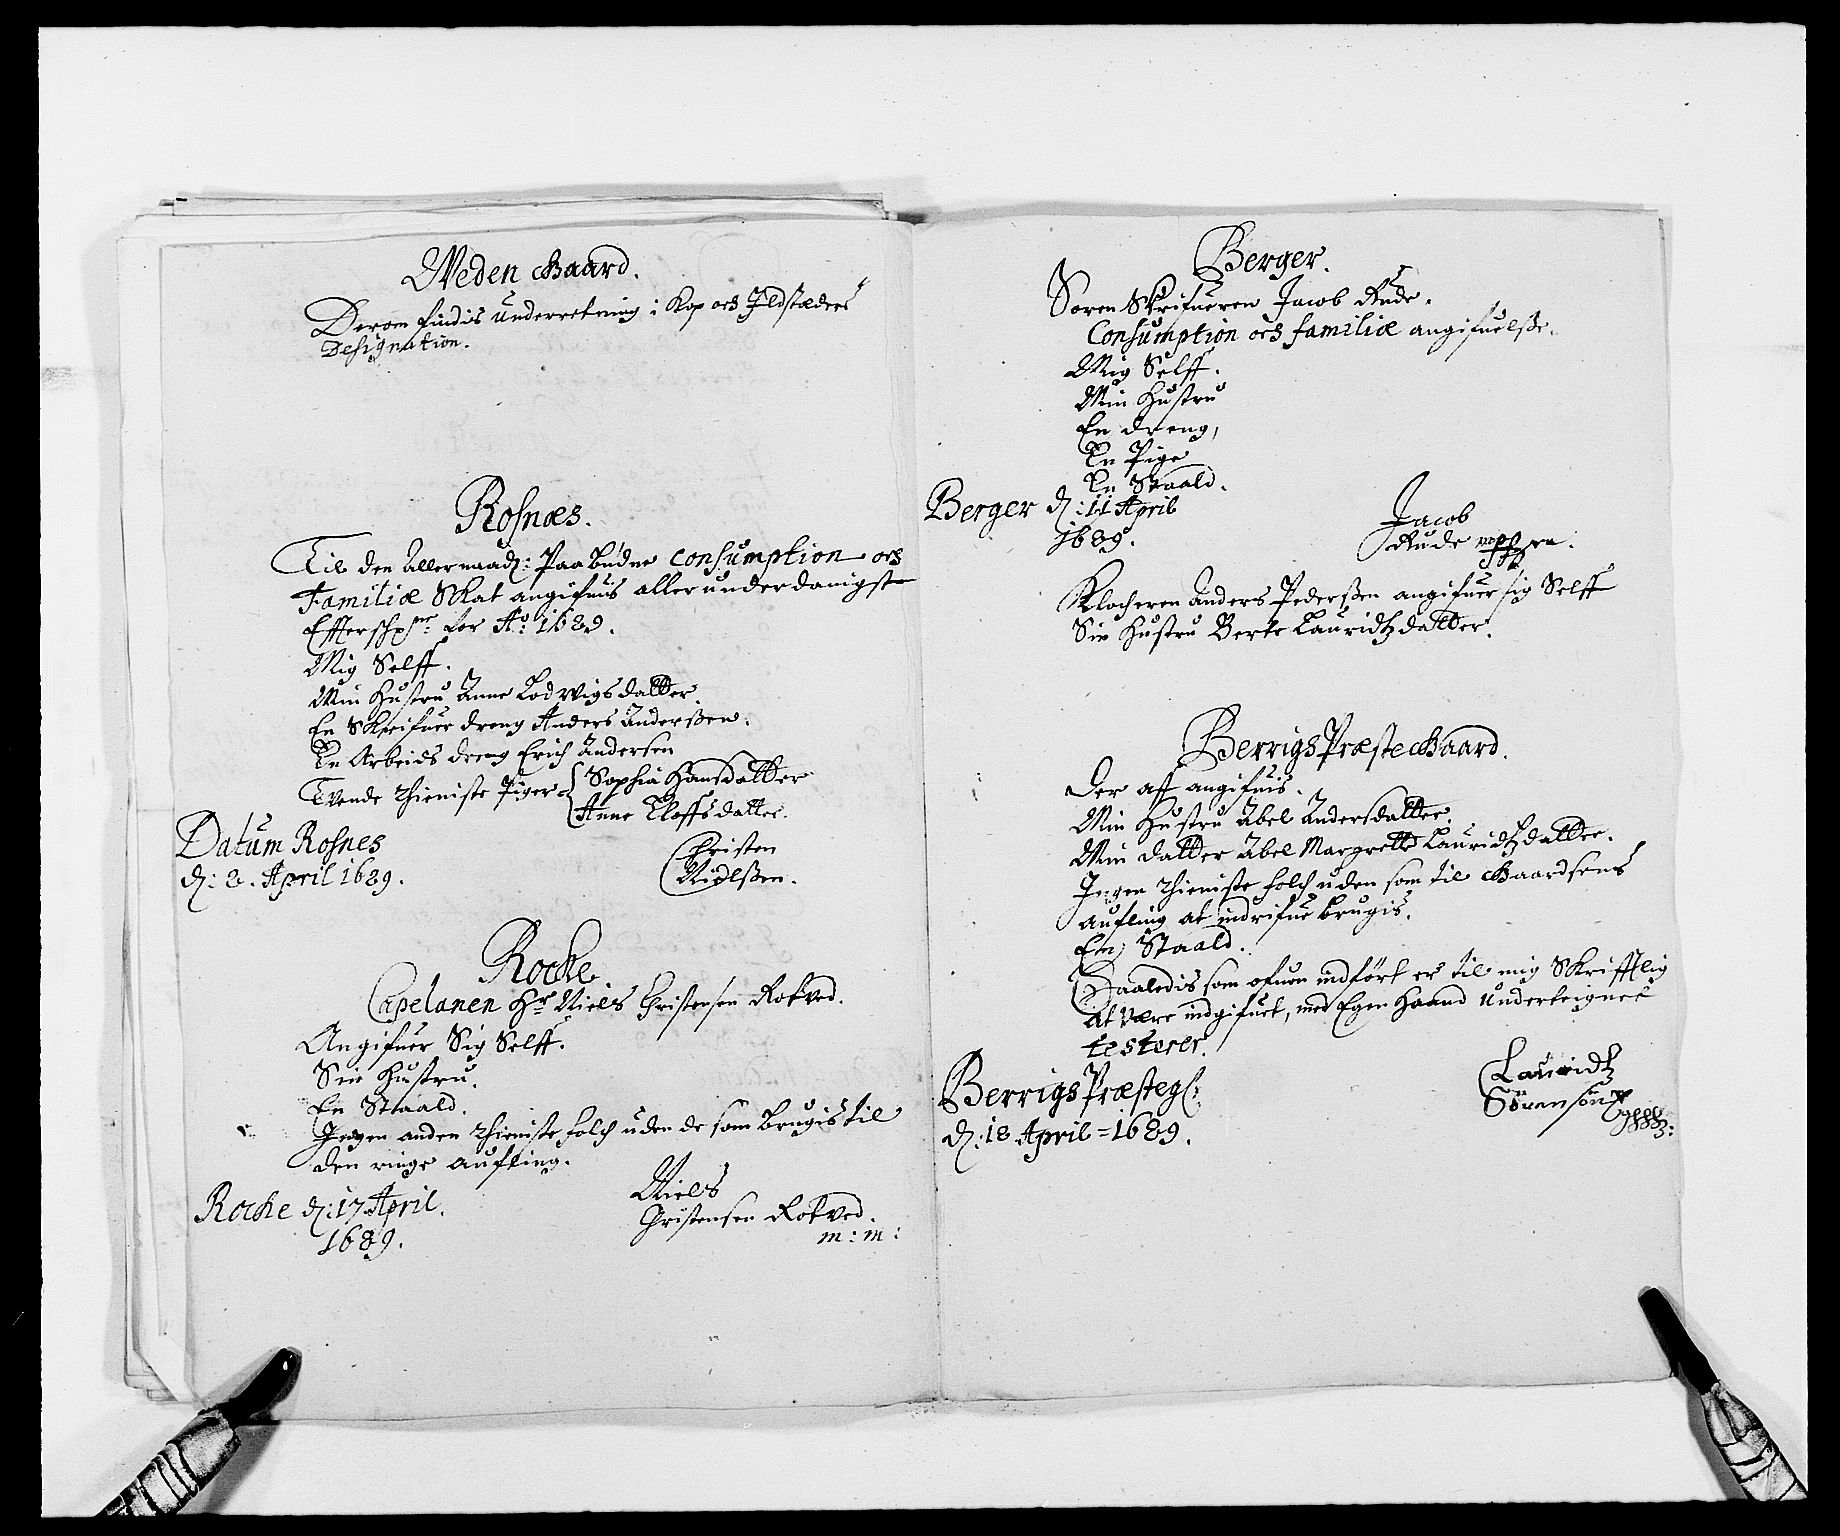 Weden Gaard.
Derom findis underretning i Kop och Ildstæders
Designation.
Rosnæs.
Til den Allernaad: Paabudne Consumption och
Familiæ Skat angifuis allerunderdanigst
for Ao: 1689.
Mig Selff.
Min Hustru Anne Lodwigsdatter
En Skrifuer dreng Anders Anderssen.
En Arbeids dreng Erich Andersen
Tvende thieniste Piger Sophia Hansdatter
Anne Eloffsdatter.
Datum Rosnes
d: 8. April 1689.
Christen
Nielssen.
Rocke
Capelanen Hr Niels Christensen Rotved.
Angifuer Sig Selff.
Sin Hustru.
En Staald.
Ingen anden thieniste folch uden de som brugis til
den ringe aufling.
Rocke d: 17 April.
1689.
Niels
Christensen Rotved.
m: m:
Berger.
Soren Skrifueren Jacob Rude.
Consumption och familiæ angifuelsse.
Mig Selff.
Min Hustru
En dreng,
En Pige
En Staald.
Berger d: 11 April
1689.
Jacob
Rude
Klocheren Anders Pederssen angifuer sig Selff
Sin Hustru Berte Lauridtzdatter.
Berrigs Præste Gaard.
Der aff angifuis.
Min Hustru Abel Andersdatter.
Min datter Abel Margrette Lauridtzdatter.
Ingen thieniste folch uden som til Gaardsens
Aufling at indrifue brugis.
En Staald.
Saaledis som ofuen indført er til mig Skrifftlig
at være indgifuet, med Egen Haand underteignet
testerer.
Berrigs Præsteg:
d: 18 April 1689.
Lauridtz
Sørensøn